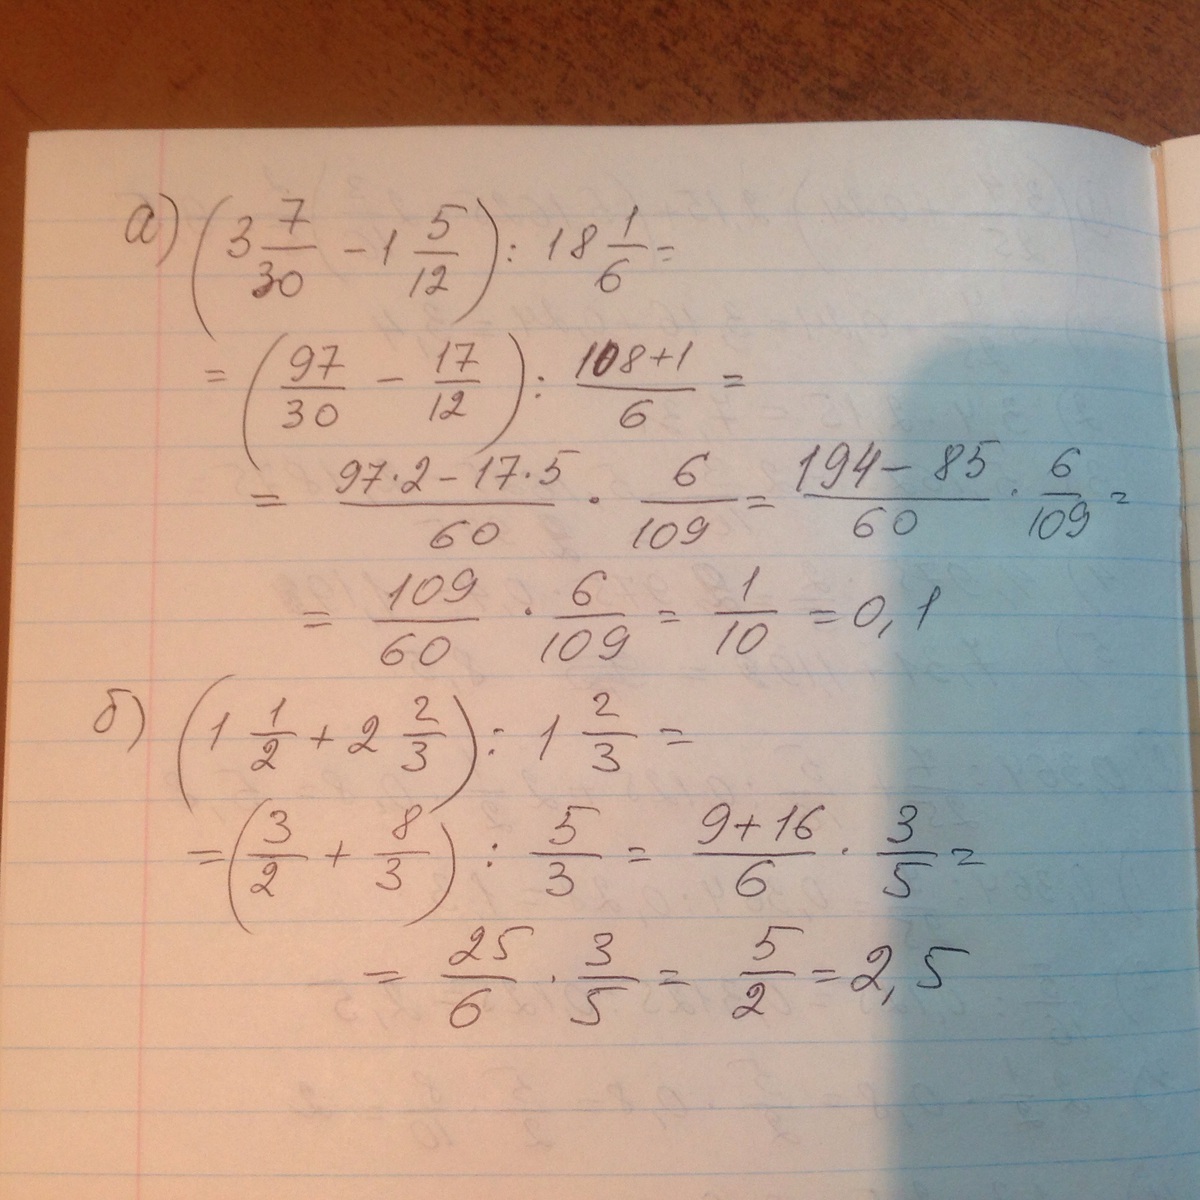 а) (3 7/30 - 1 5/12) : 18 1/6 =
= (97/30 - 17/12) : (108+1)/6 =
= (97·2-17·5)/60 · 6/109 = (194-85)/60 · 6/109 =
= 109/60 · 6/109 = 1/10 = 0,1
б) (1 1/2 + 2 2/3) : 1 2/3 =
= (3/2 + 8/3) : 5/3 = (9+16)/6 · 3/5 =
= 25/6 · 3/5 = 5/2 = 2,5